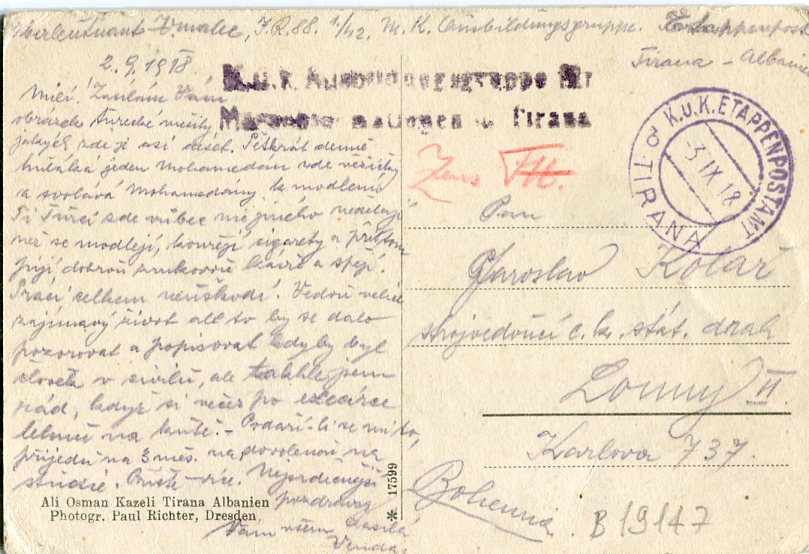 Oberleutnant Vrualec, J.R. 88. 1/42. M.K. Ausbildungsgruppe. Etappenpost
Tirana – Albanien
2.9.1918
K.u.k. Ausbildungsgruppe für
in Tirana
K.U.K. ETAPPENPOSTAMT
TIRANA
3 IX 18
Zens
Milí! Zasílám Vám
obrázek turecké mešity
jakých zde je asi deset. Pětkrát denně
jeden Mohamedán zde
a svolává Mohamedány k modlení
Ti Turci zde vůbec nic jiného nedělají
než se modlejí, kouřejí sigarety a přitom
pijí dobrou kávu a spějí.
Prací celkem neuškodí. Vedou velice
zajímavý život ale to by se dalo
pozorovat a popisovat kdyby byl
člověk v civilu, ale takhle jsem
rád, když si večer po
lehnu na – Podaří-li se mi to,
přijedu na 3 měs. na dovolenou na
studie. Příště více. Nejsrdečnější
pozdravy
Vám všem zasílá
Venda.
Pan
Jaroslav Kolář
strojvedoucí c.k. stát. drah
Louny II.
Karlova 737.
Bohemia.
B 19147
Ali Osman Kazeli Tirana Albanien
Photogr. Paul Richter, Dresden
* 17599